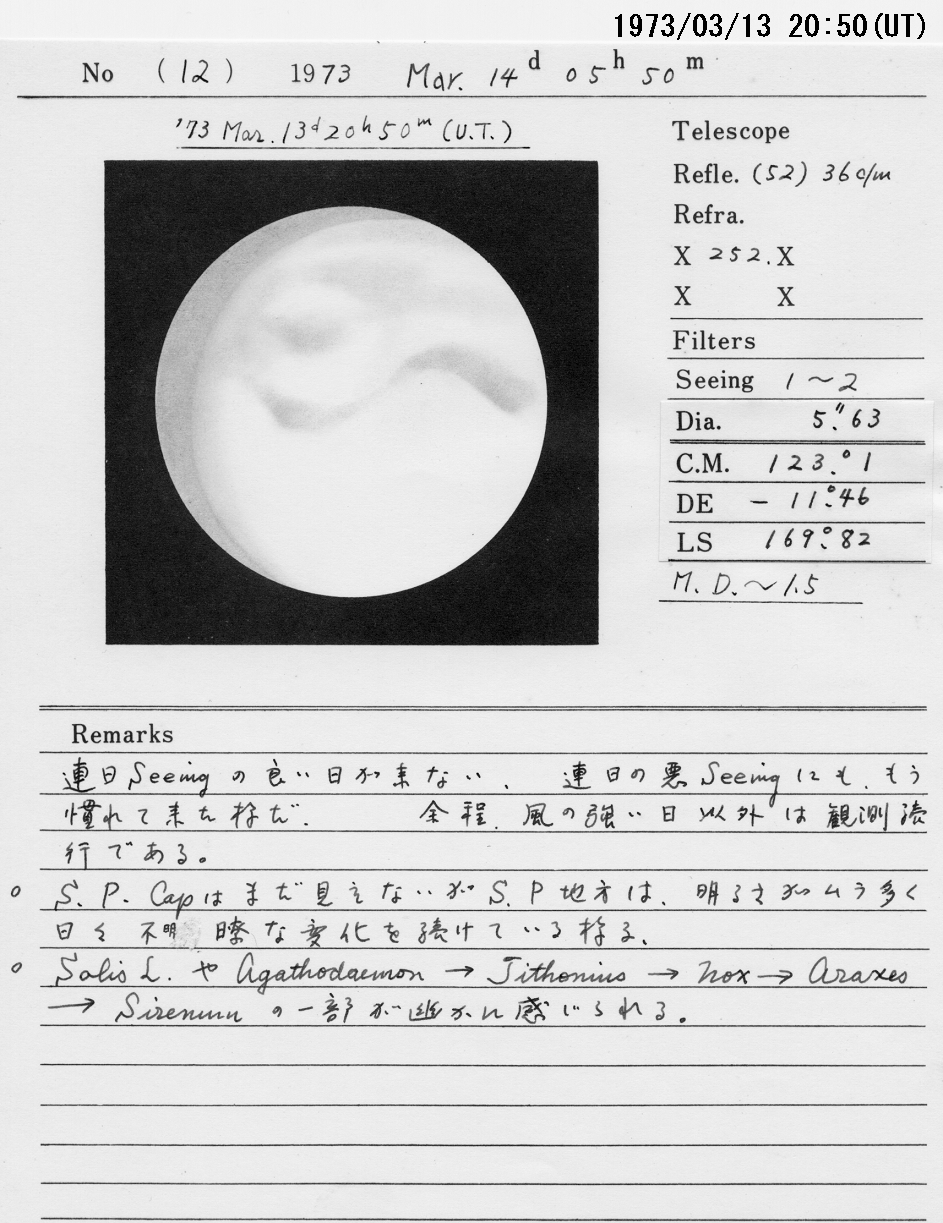 1973/03/13 20:50(UT)
No (12) 1973 Mar. 14d 05h 50m
'73 Mar. 13d 20h 50m (U.T.)
Telescope
Refle. (52) 36 c/m
Refra.
X 252. X
X X
Filters
Seeing 1～2
Dia. 5."63
C.M. 123.°1
DE - 11.°46
LS 169.°82
M. D.～1.5
Remarks
連日Seeingの良い日が来ない、 連日の悪Seeingにも、もう
慣れて来た様だ. 余程、風の強い日以外は観測続
行である。
○ S. P. Capはまだ見えないがS. P地方は、明るさがムラ多く
日々不明瞭な変化を続けている様る、
○ Solis L. や Agathodaemon → Tithonius → Nox → Araxes
→ Sirenum の一部が幽かに感じられる。